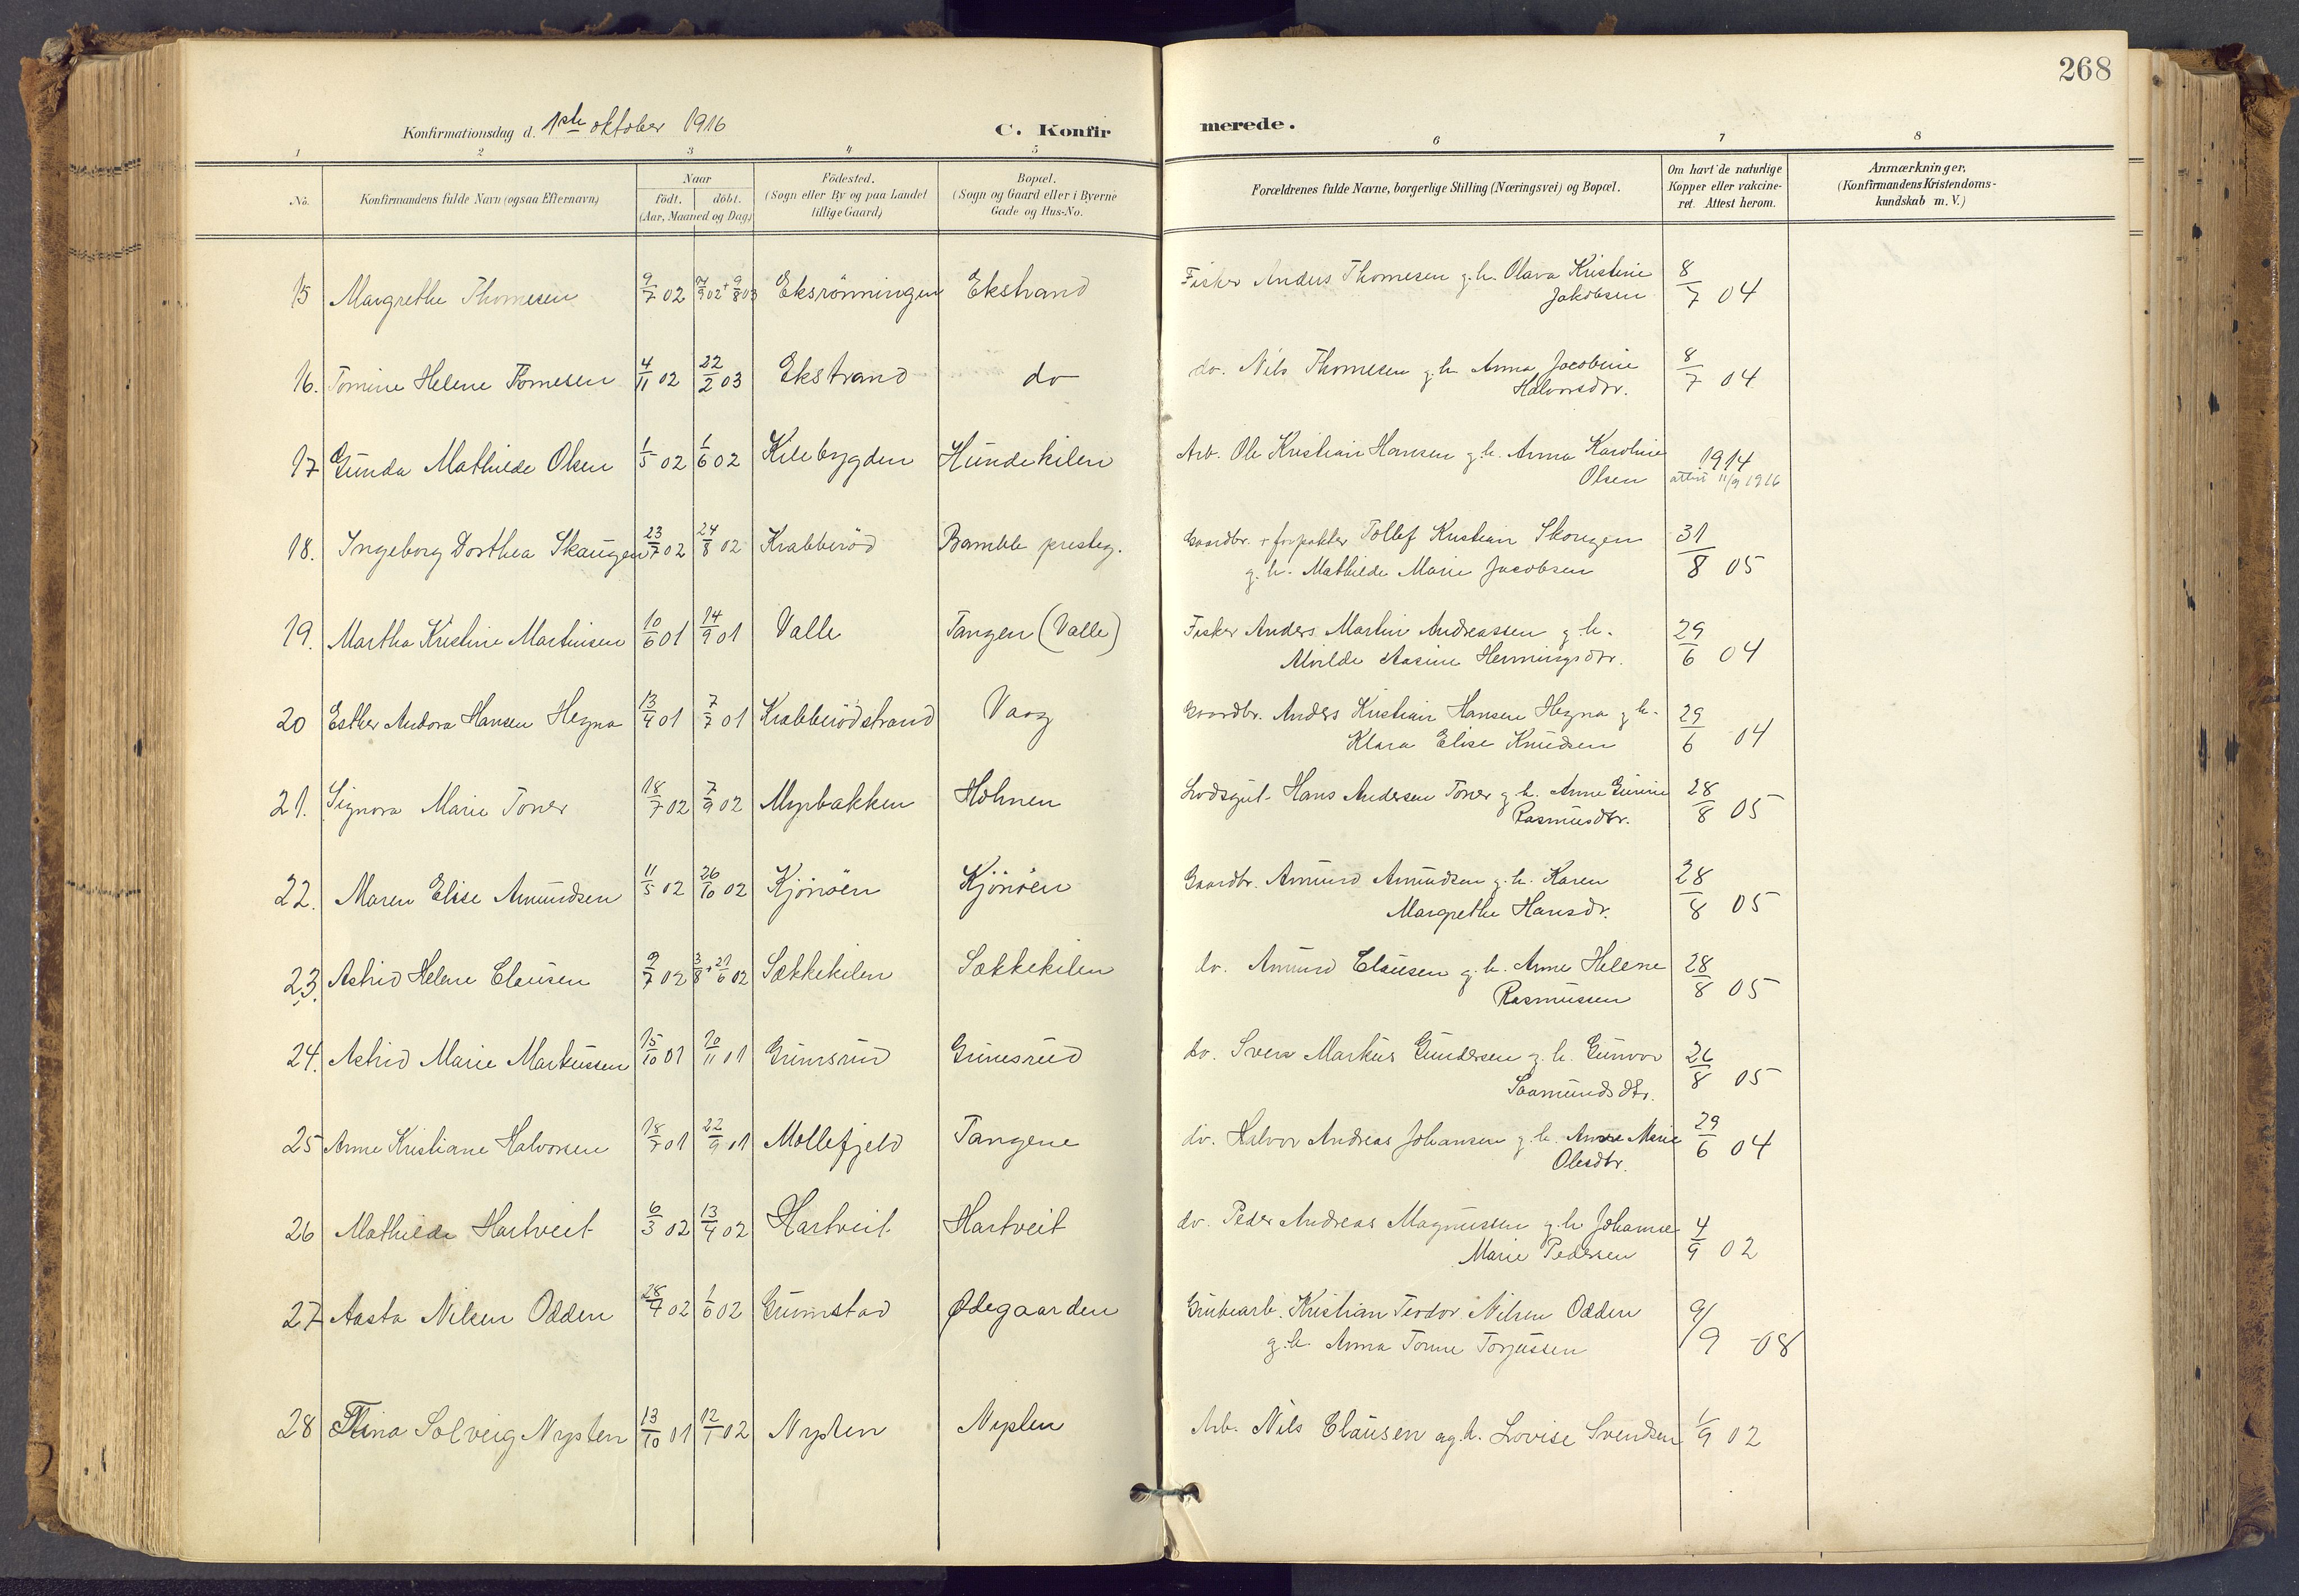 268
Konfirmationsdag d. 1ste oktober 1916
C. Konfirmerede.
1 2 3 4 5 6 7 8
No.
Konfirmandens fulde Navn (ogsaa Efternavn)
Naar
födt. döbt.
(Aar, Maaned og Dag)
Födested.
(Sogn eller By og paa Landet
tillige Gaard)
Bopæl.
(Sogn og Gaard eller i Byerne
Gade og Hus-No.
Forældrenes fulde Navne, borgerlige Stilling (Næringsvei) og Bopæl.
Om havt de naturlige
Kopper eller vakcine-
ret. Attest herom.
Anmærkninger.
(Konfirmandens Kristendoms-
kundskab m. V.)
15 Margrethe Thomesen 9/7 02 7/9 02 + 9/8 03 Eksrönningen Ekstrand Fisker Anders Thomesen g. h. Olava Kristine 8/7 04
Jakobsen
16. Tomine Helene Tomesen 4/11 02 22/2 03 Ekstrand do do. Nils Thomesen g. h. Anna Jacobine 8/7 04
Halvorsdtr.
17 Gunda Mathilde Olsen 1/5 02 1/6 02 Kilebygden Hundekilen Arb. Ole Kristian Hansen g. h. Anna Karoline 1914
Olsen attest 11/9 1916
18. Ingeborg Dorthea Skaugen 23/7 02 24/8 02 Krabberöd Bamble presteg. Gaardbr. + forpakter Tollef Kristian Skougen 31/8 05
g. h. Mathilde Marie Jacobsen
19. Martha Kristine Martinsen 10/6 01 14/9 01 Valle Tangen (Valle) Fisker Anders Martin Andreassen g. h. 29/6 04
Alvilde Aasine Henningsdtr.
20 Esther Andora Hansen Hegna 13/4 01 7/7 01 Krabberödstrand Vaag Gaardbr. Anders Kristian Hansen Hegna g h. 29/6 04
Klara Elise Knudsen
21. Signora Marie Toner 18/7 02 7/9 02 Myrbakken Holmen Lodsgut. Hans Andersen Toner g h. Anne Gurine 28/8 05
Rasmusdtr.
22. Maren Elise Amundsen 11/5 02 26/10 02 Kjönöen Kjönöen Gaardbr. Amund Amundsen g. h. Karen 28/8 05
Margrethe Hansdr.
23. Astrid Helene Clausen 9/7 02 3/8 + 21/6 02 Sækkekilen Sækkekilen do. Amund Clausen g. h. Anne Helene 28/8 05
Rasmussen
24. Astrid Marie Markussen 15/10 01 10/11 01 Gunnsrud Gunesrud do. Sven Markus Gundersen g. h. Gunvor 26/8 05
Saamundsdtr.
25 Anne Kristiane Halvorsen 18/7 01 22/9 01 Mollefjeld Tangene do. Halvor Andreas Johansen g. h. Anne Marie 29/6 04
Olesdtr.
26 Mathilde Hartveit 6/3 02 13/4 02 Hartveit Hartveit do. Peder Andreas Magnussen g. h. Johanne 4/9 02
Marie Pedersen
27 Aasta Nilsen Odden 28/4 02 1/6 02 Grumstad Ødegaarden Grubearb. Kristian Teodor Nilsen Odden 9/9 08
g. h. Anna Tomine Torjussen
28 Tina Solveig Nysten 13/10 01 12/1 02 Nysten Nysten Arb. Nils Clausen og h. Lovise Svendsen 1/9 02